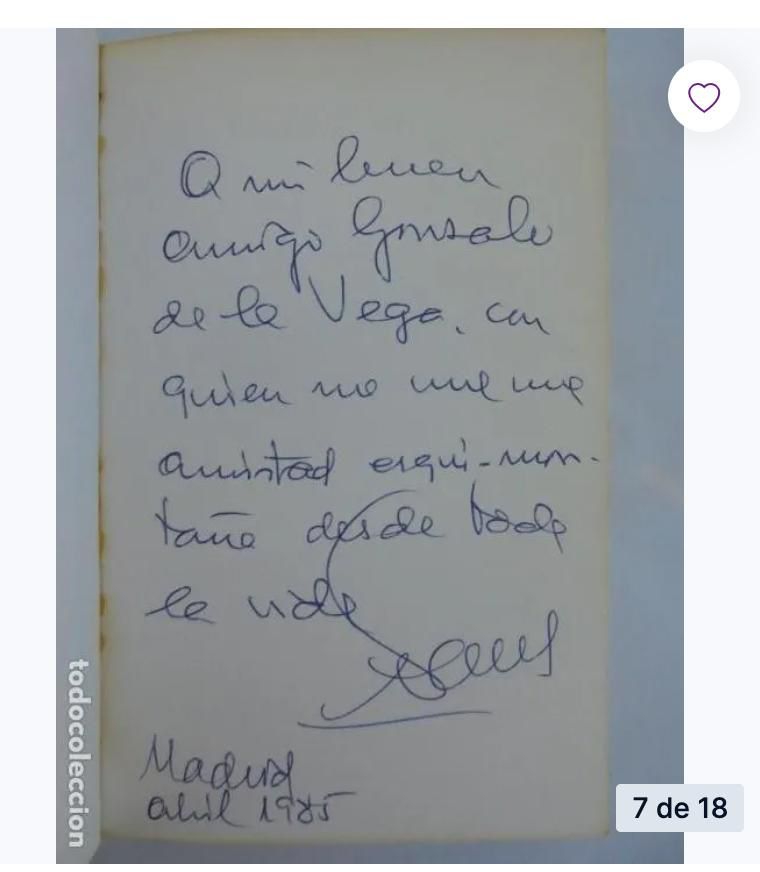 A mi buen
amigo Gonzalo
de la Vega, con
quien me une una
amistad esqui-mon-
taña desde toda
la vida
Madrid
abril 1985
todocoleccion
7 de 18